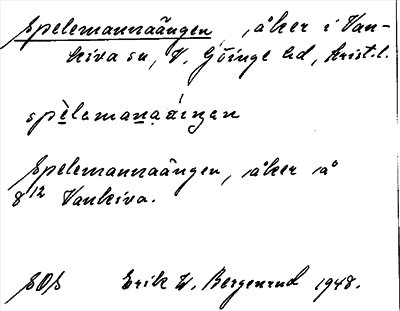 Spelemannaängen, åker i Van-
kiva sn, V. Göinge hd, Krist.l.
spèlemanaáingan
Spelemannaängen, åker å
8 12 Vankiva.
SOS Erik W. Bergenrud 1948.